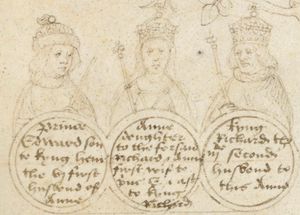 Prince
Edward son
to kyng henr
the vj first
husbond of
Anne
Anne
doughter
to the forsaid
Richard & Anne
first wif to
to kyng
Richard
Kyng
Richard the
second
husbond to
this Anne